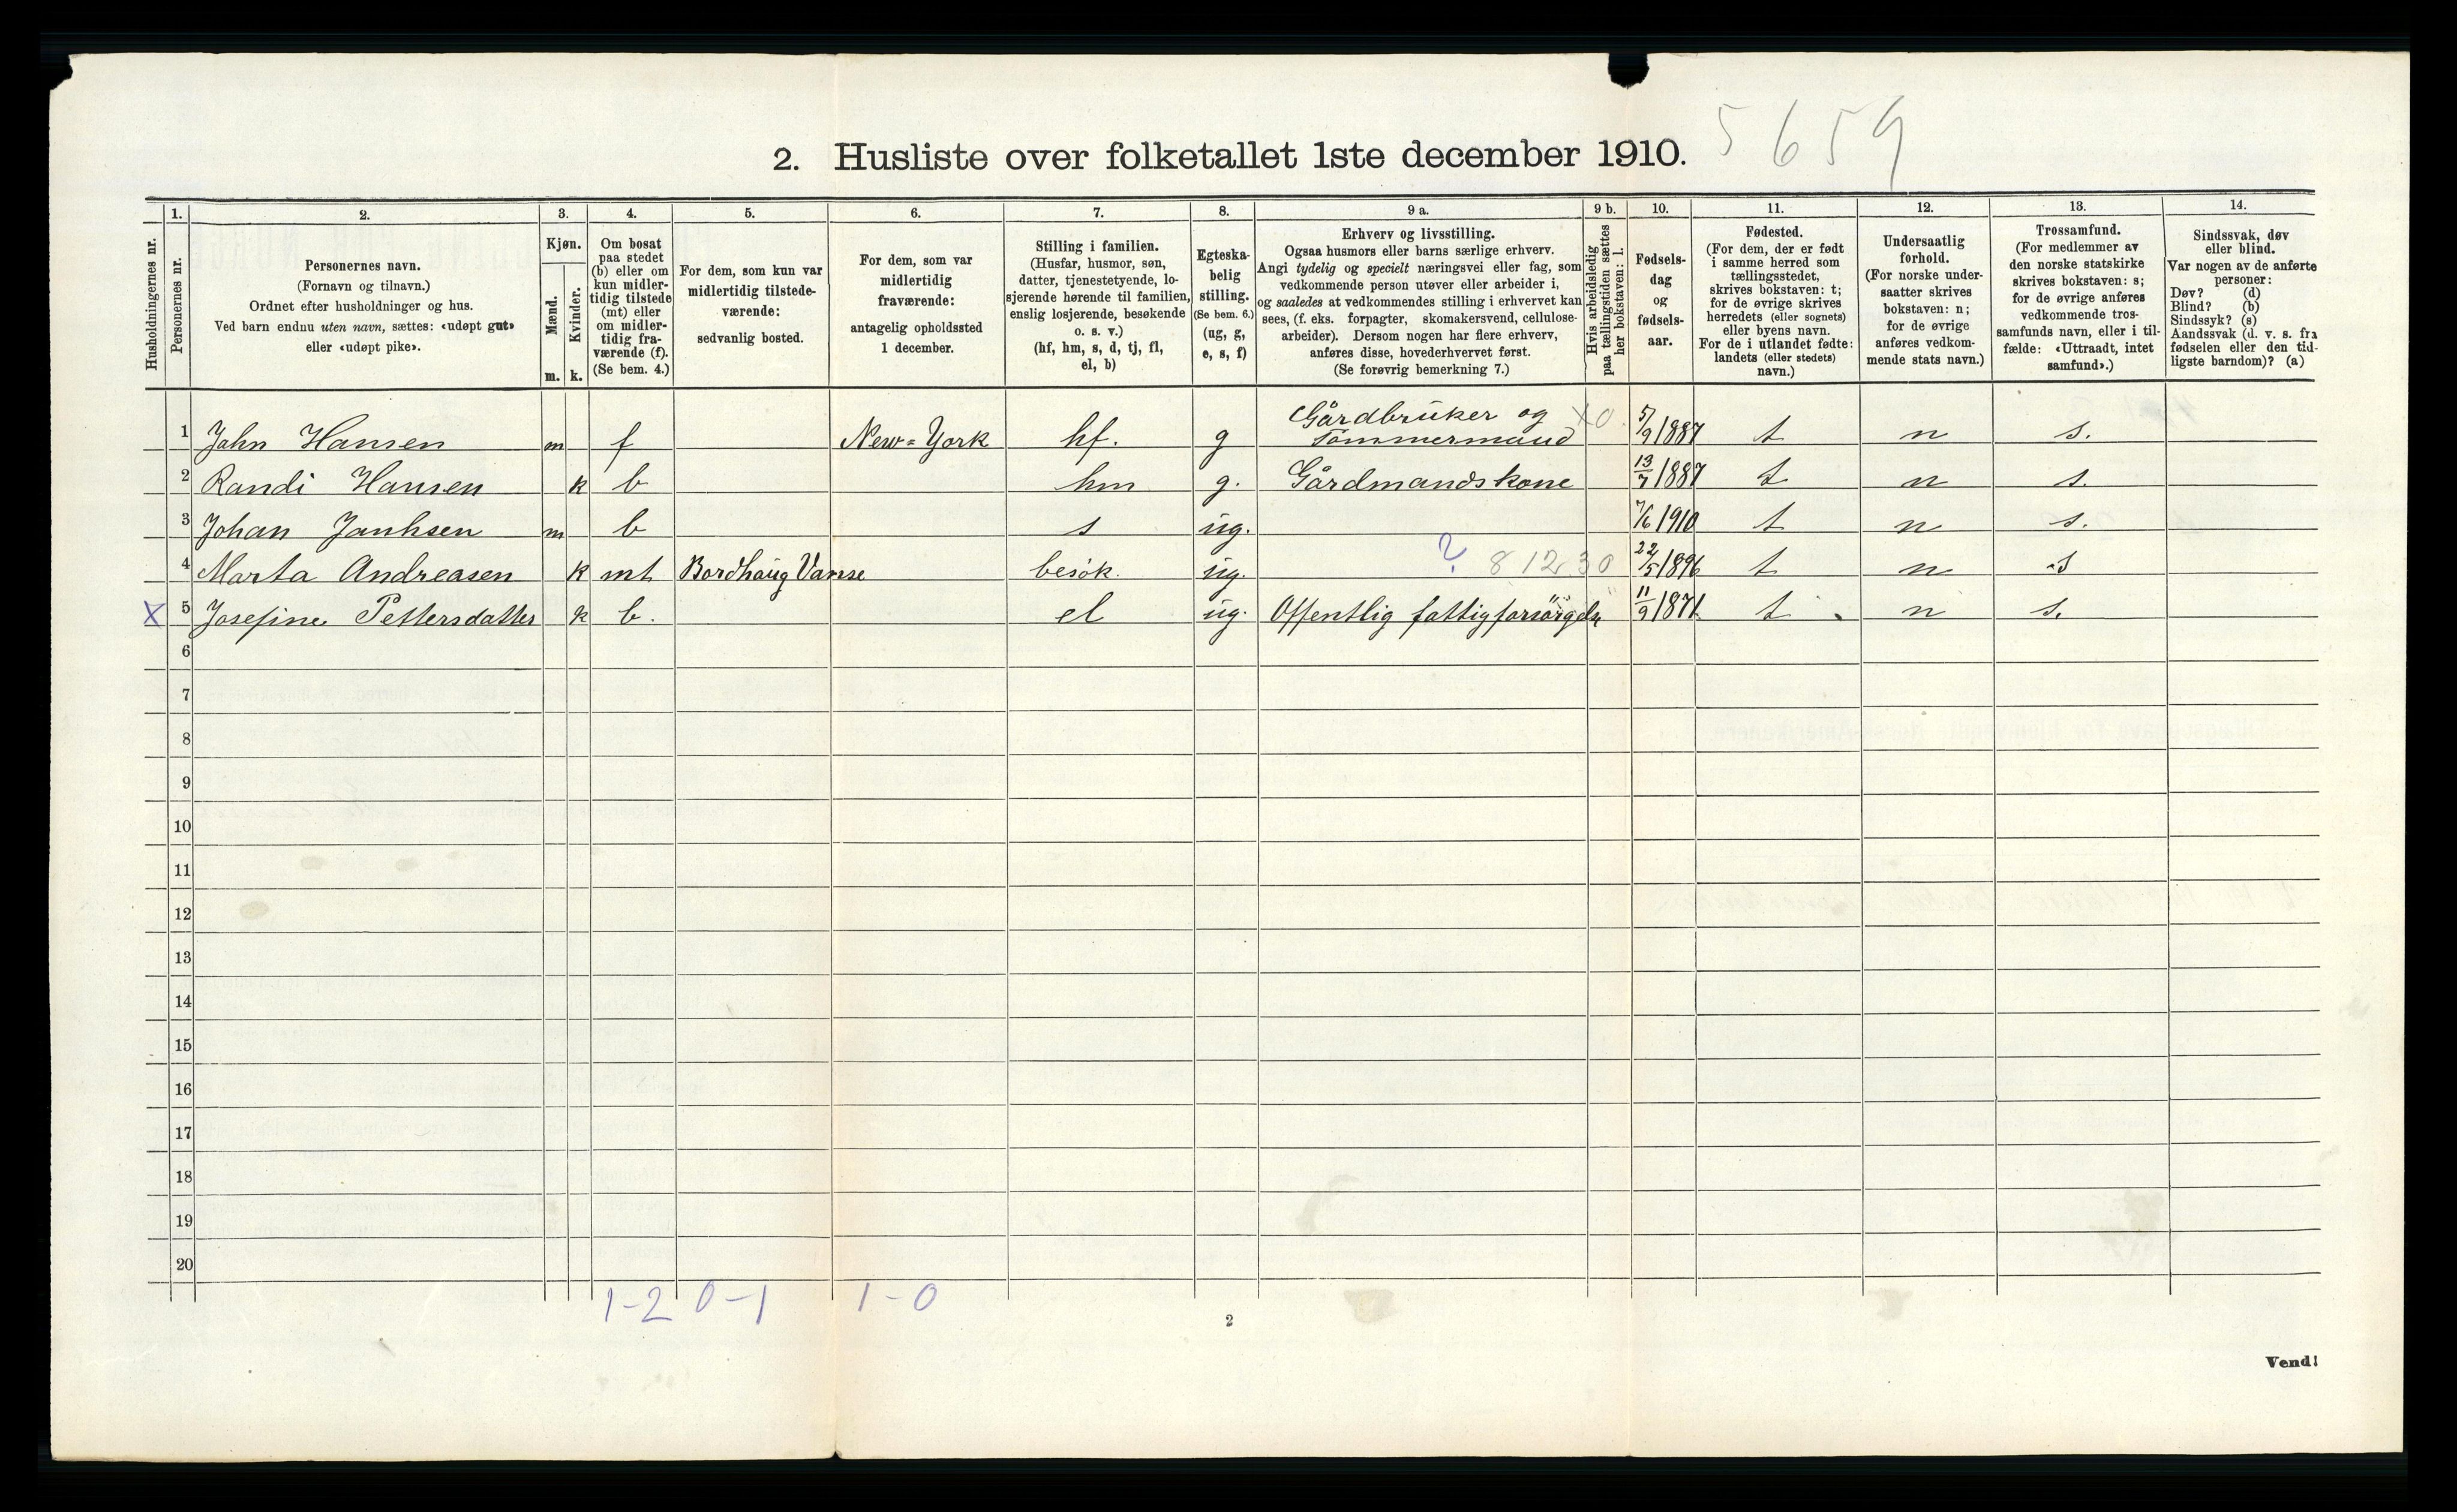 5659
2. Husliste over folketallet 1ste december 1910.
Husholdningernes nr.
1.
Personernes nr.
2.
Personernes navn.
(Fornavn og tilnavn.)
Ordnet efter husholdninger og hus.
Ved barn endnu uten navn, sættes: «udøpt gut»
eller «udøpt pike».
3.
Kjøn.
Mænd.
m.
Kvinder.
k.
4.
Om bosat
paa stedet
(b) eller om
kun midler-
tidig tilstede
(mt) eller
om midler-
tidig fra-
værende (f).
(Se bem. 4.)
5.
For dem, som kun var
midlertidig tilstede-
værende:
sedvanlig bosted.
6.
For dem, som var
midlertidig
fraværende:
antagelig opholdssted
1 december.
7.
Stilling i familien.
(Husfar, husmor, søn,
datter, tjenestetyende, lo-
sjerende hørende til familien,
enslig losjerende, besøkende
o. s. v.)
(hf, hm, s, d, tj, fl,
el, b)
8.
Egteska-
belig
stilling.
(Se bem. 6.)
(ug, g,
e, s, f)
9 a.
Erhverv og livsstilling.
Ogsaa husmors eller barns særlige erhverv.
Angi tydelig og specielt næringsvei eller fag, som
vedkommende person utøver eller arbeider i,
og saaledes at vedkommendes stilling i erhvervet kan
sees, (f. eks. forpagter, skomakersvend, cellulose-
arbeider). Dersom nogen har flere erhverv,
anføres disse, hovederhvervet først.
(Se forøvrig bemerkning 7.)
9 b.
Hvis arbeidsledig
paa tællingstiden sættes
her bokstaven: l.
10.
Fødsels-
dag
og
fødsels-
aar.
11.
Fødested.
(For dem, der er født
i samme herred som
tællingsstedet,
skrives bokstaven: t;
for de øvrige skrives
herredets (eller sognets)
eller byens navn.
For de i utlandet fødte:
landets (eller stedets)
navn.)
12.
Undersaatlig
forhold.
(For norske under-
saatter skrives
bokstaven: n;
for de øvrige
anføres vedkom-
mende stats navn.)
13.
Trossamfund.
(For medlemmer av
den norske statskirke
skrives bokstaven: s;
for de øvrige anføres
vedkommende tros-
samfunds navn, eller i til-
fælde: «Uttraadt, intet
samfund».)
14.
Sindssvak, døv
eller blind.
Var nogen av de anførte
personer:
Døv? (d)
Blind? (b)
Sindssyk? (s)
Aandssvak (d. v. s. fra
fødselen eller den tid-
ligste barndom)? (a)
1 Jahn Hansen m f New=York hf. g Gårdbruker og Tømmermand X0. 5/9 1887 t n s.
2 Randi Hansen k b hm g. Gårdmandskone 13/7 1887 t n s.
3 Johan Janhsen m b s ug. 7/6 1910 t n s.
4 Marta Andreasen k mt Bordhaug Vanse besøk. ug. ? 8 12 30 22/5 1896 t n s
X 5 Josefine Pettersdatter k b. el ug. Offentlig fattigforsørgels " 11/9 1871 t n s.
6
7
8
9
10
11
12
13
14
15
16
17
18
19
20
1-2 0-1 1-0
2
Vend!